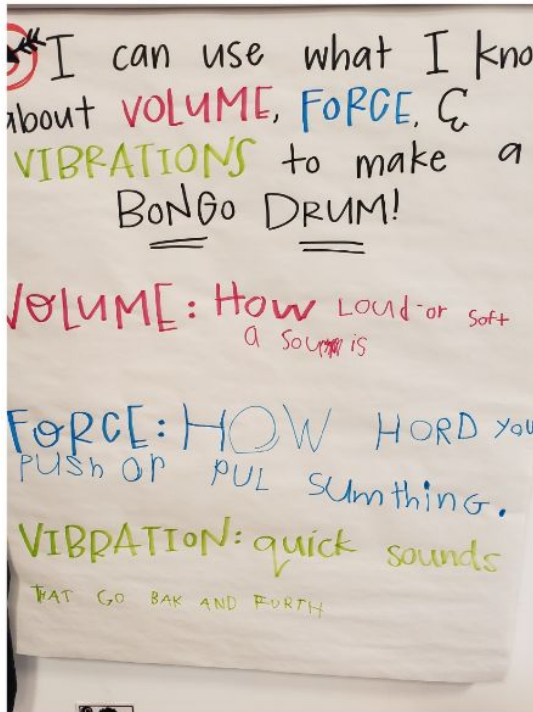 I can use what I kno
about VOLUME, FORCE, &
VIBRATIONS to make a
BONGO DRUM!
VOLUME: How LOUd or Soft
a is
FORCE: HOW HORD YOU
PUSh Or PUL Sumthing.
VIBRATION: quick sounds
THAT GO BAK AND FURTH